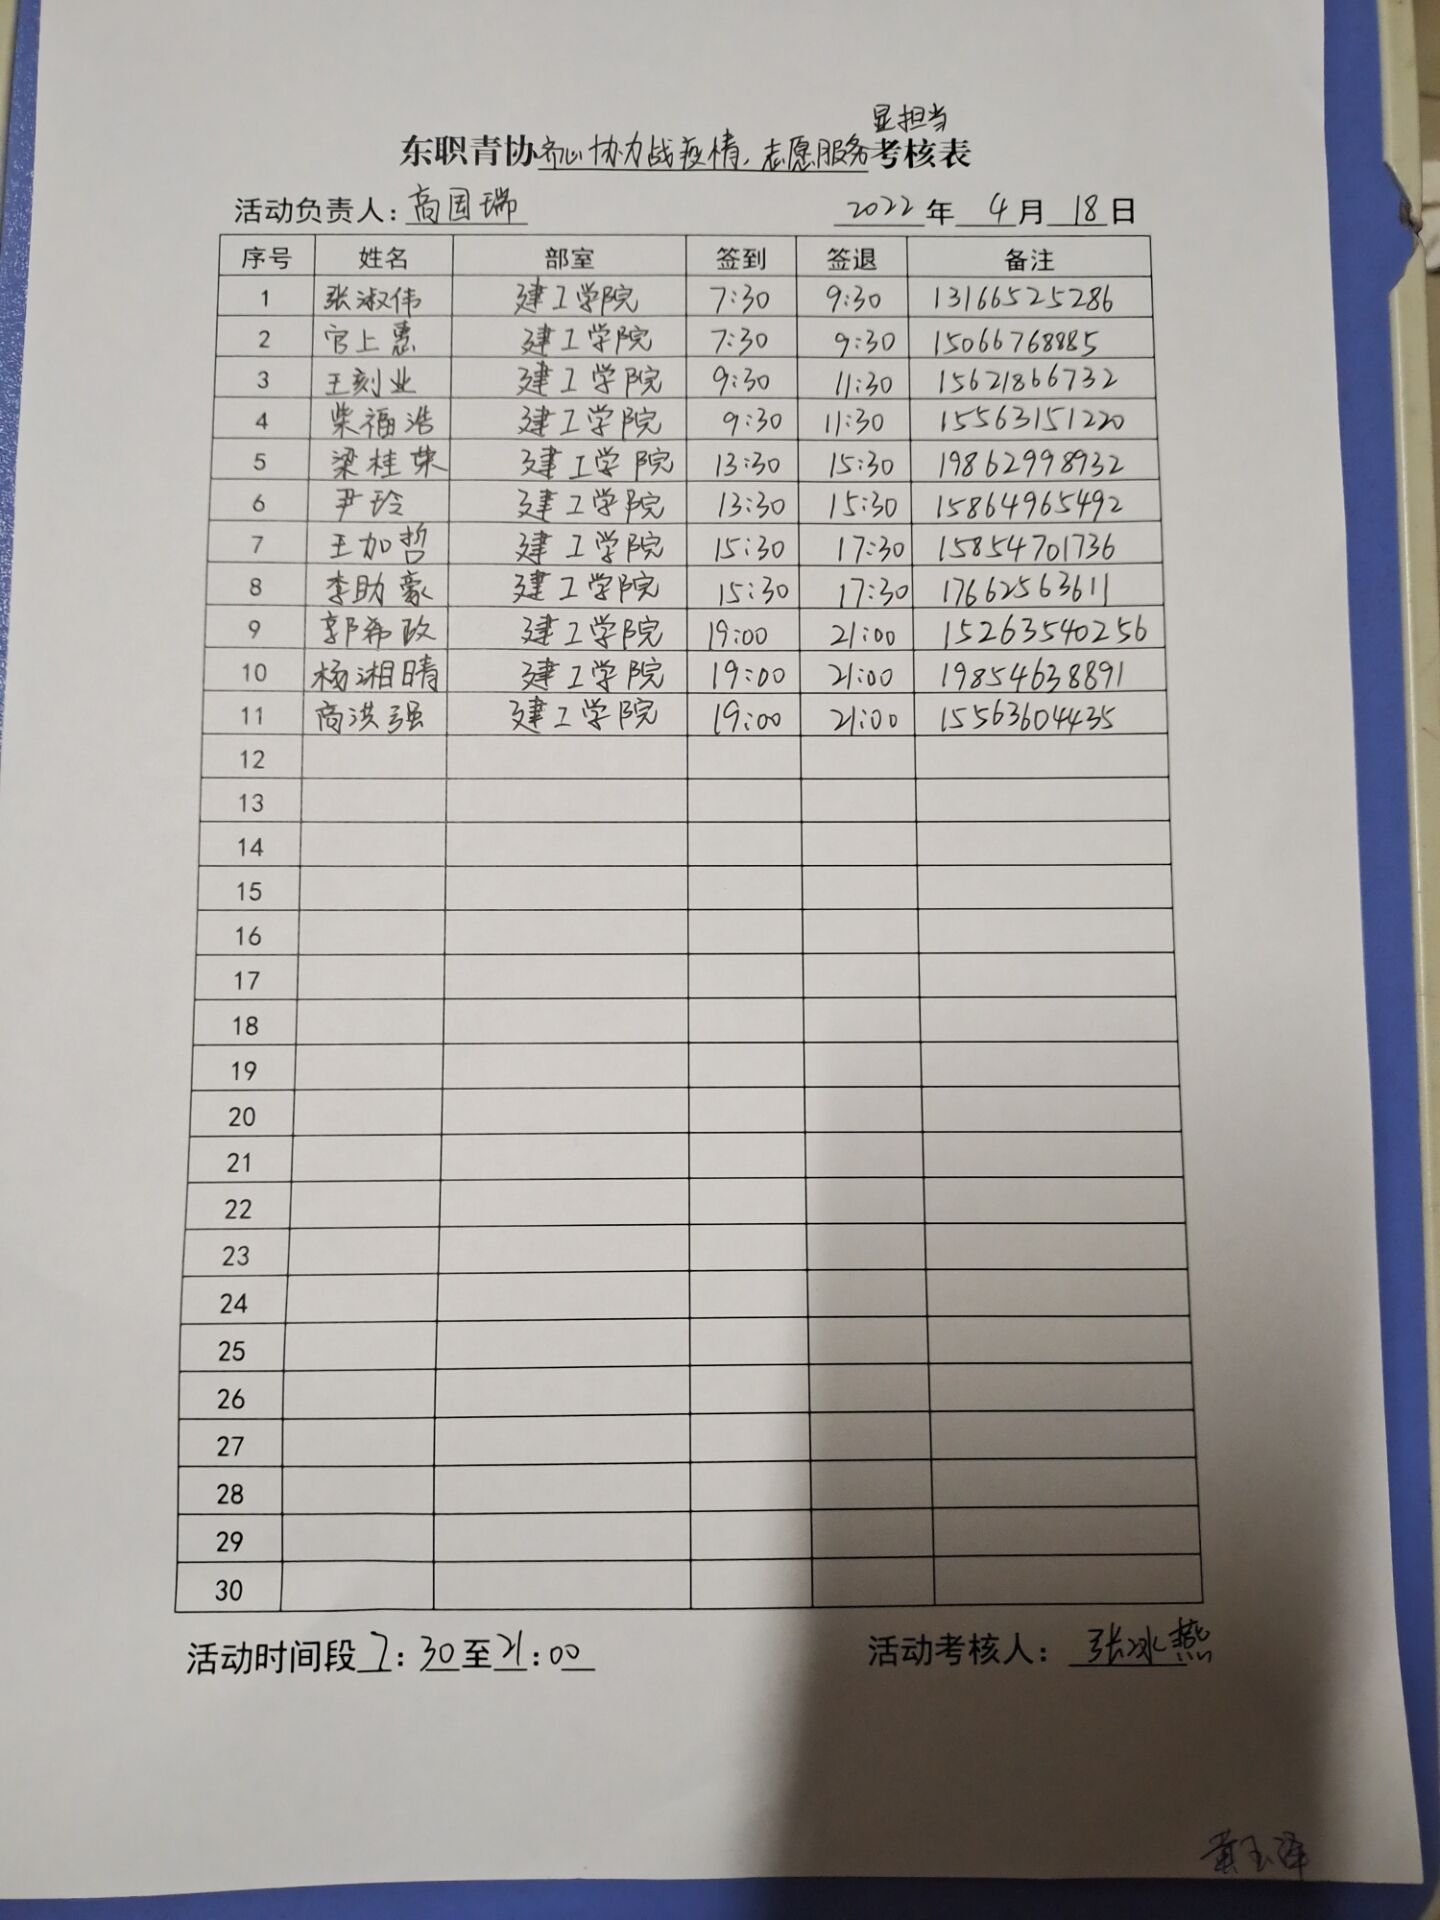 显担当
东职青协齐心协力战疫情，志愿服务考核表
活动负责人：高国瑞 2022年 4月 18日
序号 姓名 部室 签到 签退 备注
1 张淑伟 建工学院 7:30 9:30 13166525286
2 官上惠 建工学院 7:30 9:30 15066768885
3 王刻业 建工学院 9:30 11:30 15621866732
4 柴福浩 建工学院 9:30 11:30 15563151220
5 梁桂荣 建工学院 13:30 15:30 19862998932
6 尹玲 建工学院 13:30 15:30 15864965492
7 王加哲 建工学院 15:30 17:30 15854701736
8 李助豪 建工学院 15:30 17:30 17662563611
9 郭希政 建工学院 19:00 21:00 15263540256
10 杨湘晴 建工学院 19:00 21:00 19854638891
11 商洪强 建工学院 19:00 21:00 15563604435
12
13
14
15
16
17
18
19
20
21
22
23
24
25
26
27
28
29
30
活动时间段 7:30至21:00 活动考核人：张冰燕
黄玉泽